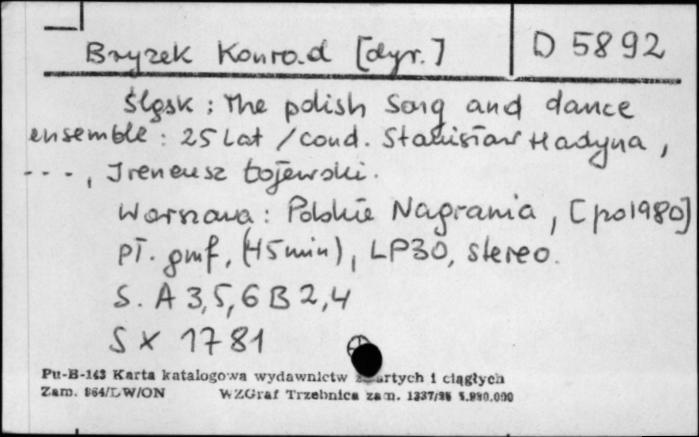 Bryzek Konrad [dyr.] D 5892
Śląsk : The polish song and dance
ensemble : 25 Lat / cond. Stanisław Hadyna ,
- - - , Ireneusz Łojewski .
Warszawa : Polskie Nagrania , [po1980]
Pł. gmf, (45 min), LP30, stereo.
S. A 3,5,6 B 2,4
SX 1781
Pu-B-143 Karta katalogowa wydawnictw zwartych i ciągłych
Zam. 864/LW/ON WZGraf Trzebnica zam. 1337/88 5.990.000